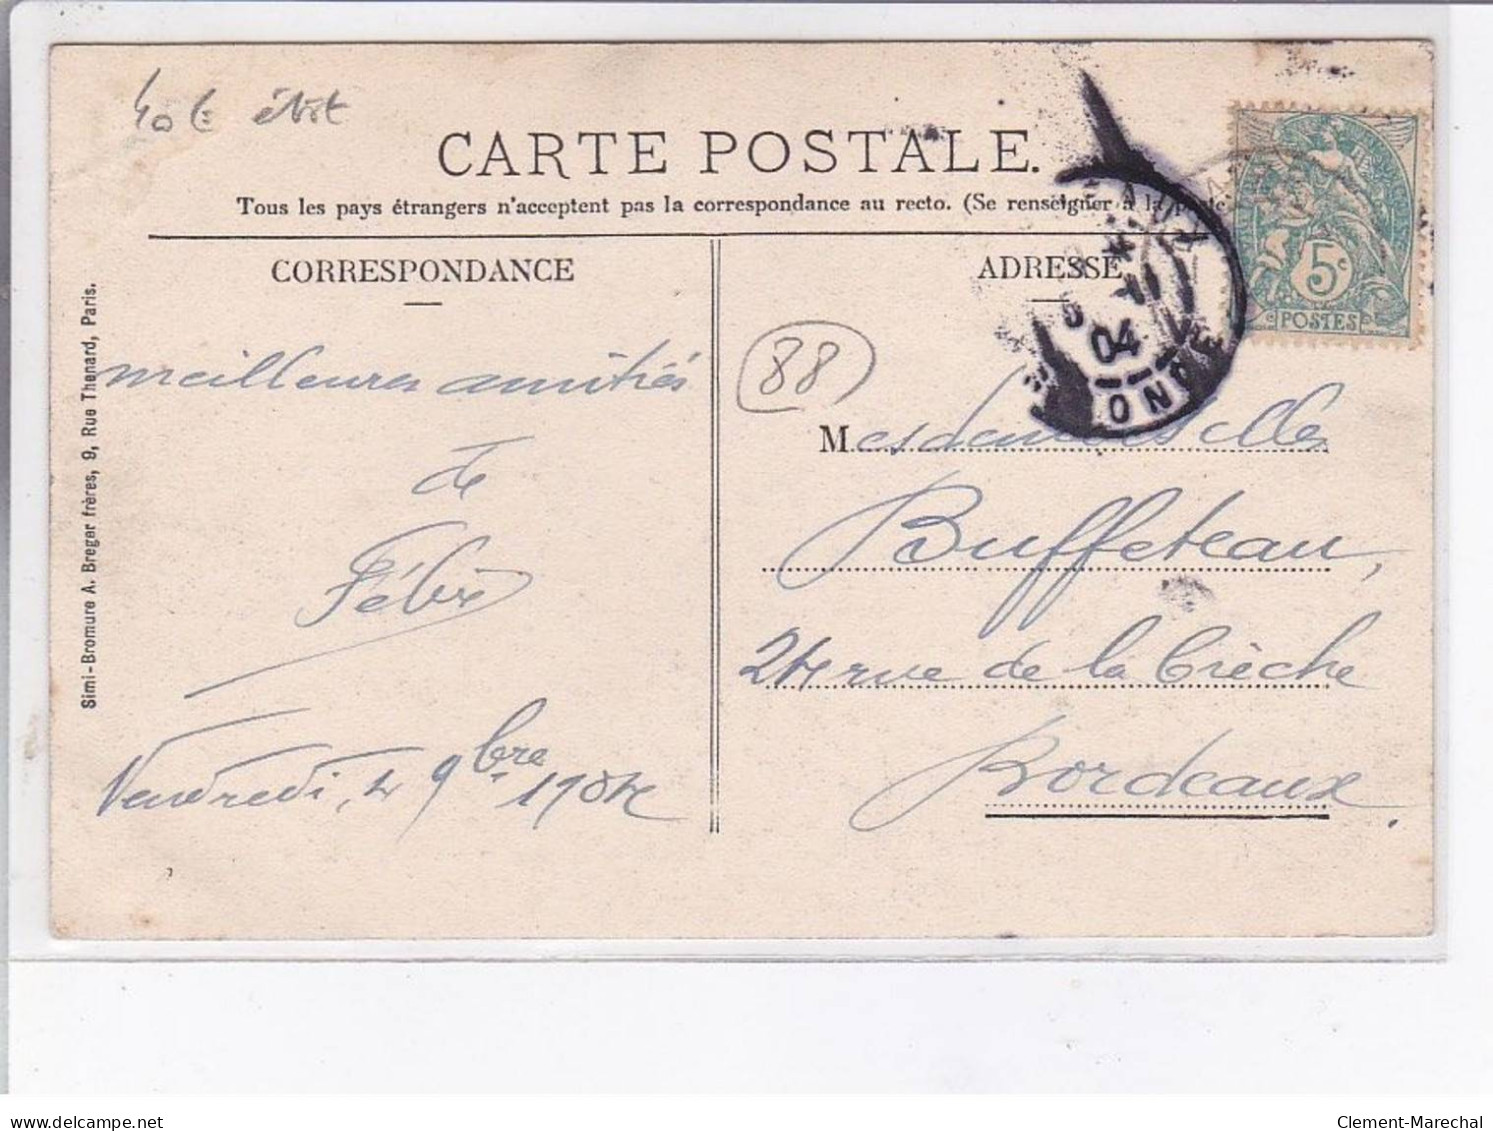 40 €
CARTE POSTALE.
Tous les pays étrangers n'acceptent pas la correspondance au recto. (Se renseigner à la poste
CORRESPONDANCE
ADRESSE
Simi-Bromure A. Breger frères, 9, Rue Thenard, Paris.
meilleures amitiés
de
Félix
Vendredi, 4 9bre 1904
88
Mesdemoiselles
Buffeteau,
24 rue de la Crèche
Bordeaux.
04
GIRONDE
5c
POSTES
Clement-Marechal
delcampe.net